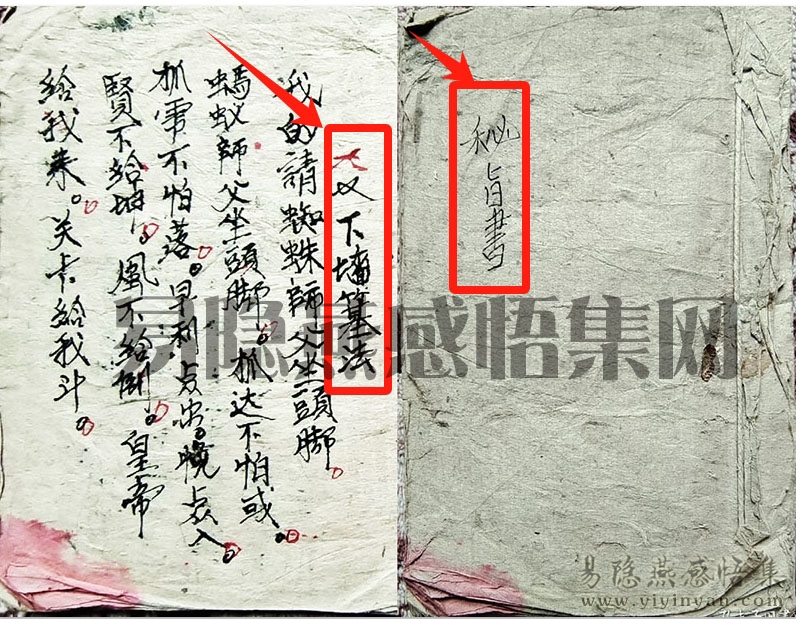 又下墦墓法
我的請蜘蛛師父坐頭脚。
螞蚁師父坐頭脚。抓达不怕或。
抓雷不怕落。早利点出。晚点入。
賢不给坤。風不给倒。皇帝
給我来。关卡给我斗。
秘旨書
易隐燕感悟集网
易隐燕感悟集
www.yiyinyan.com